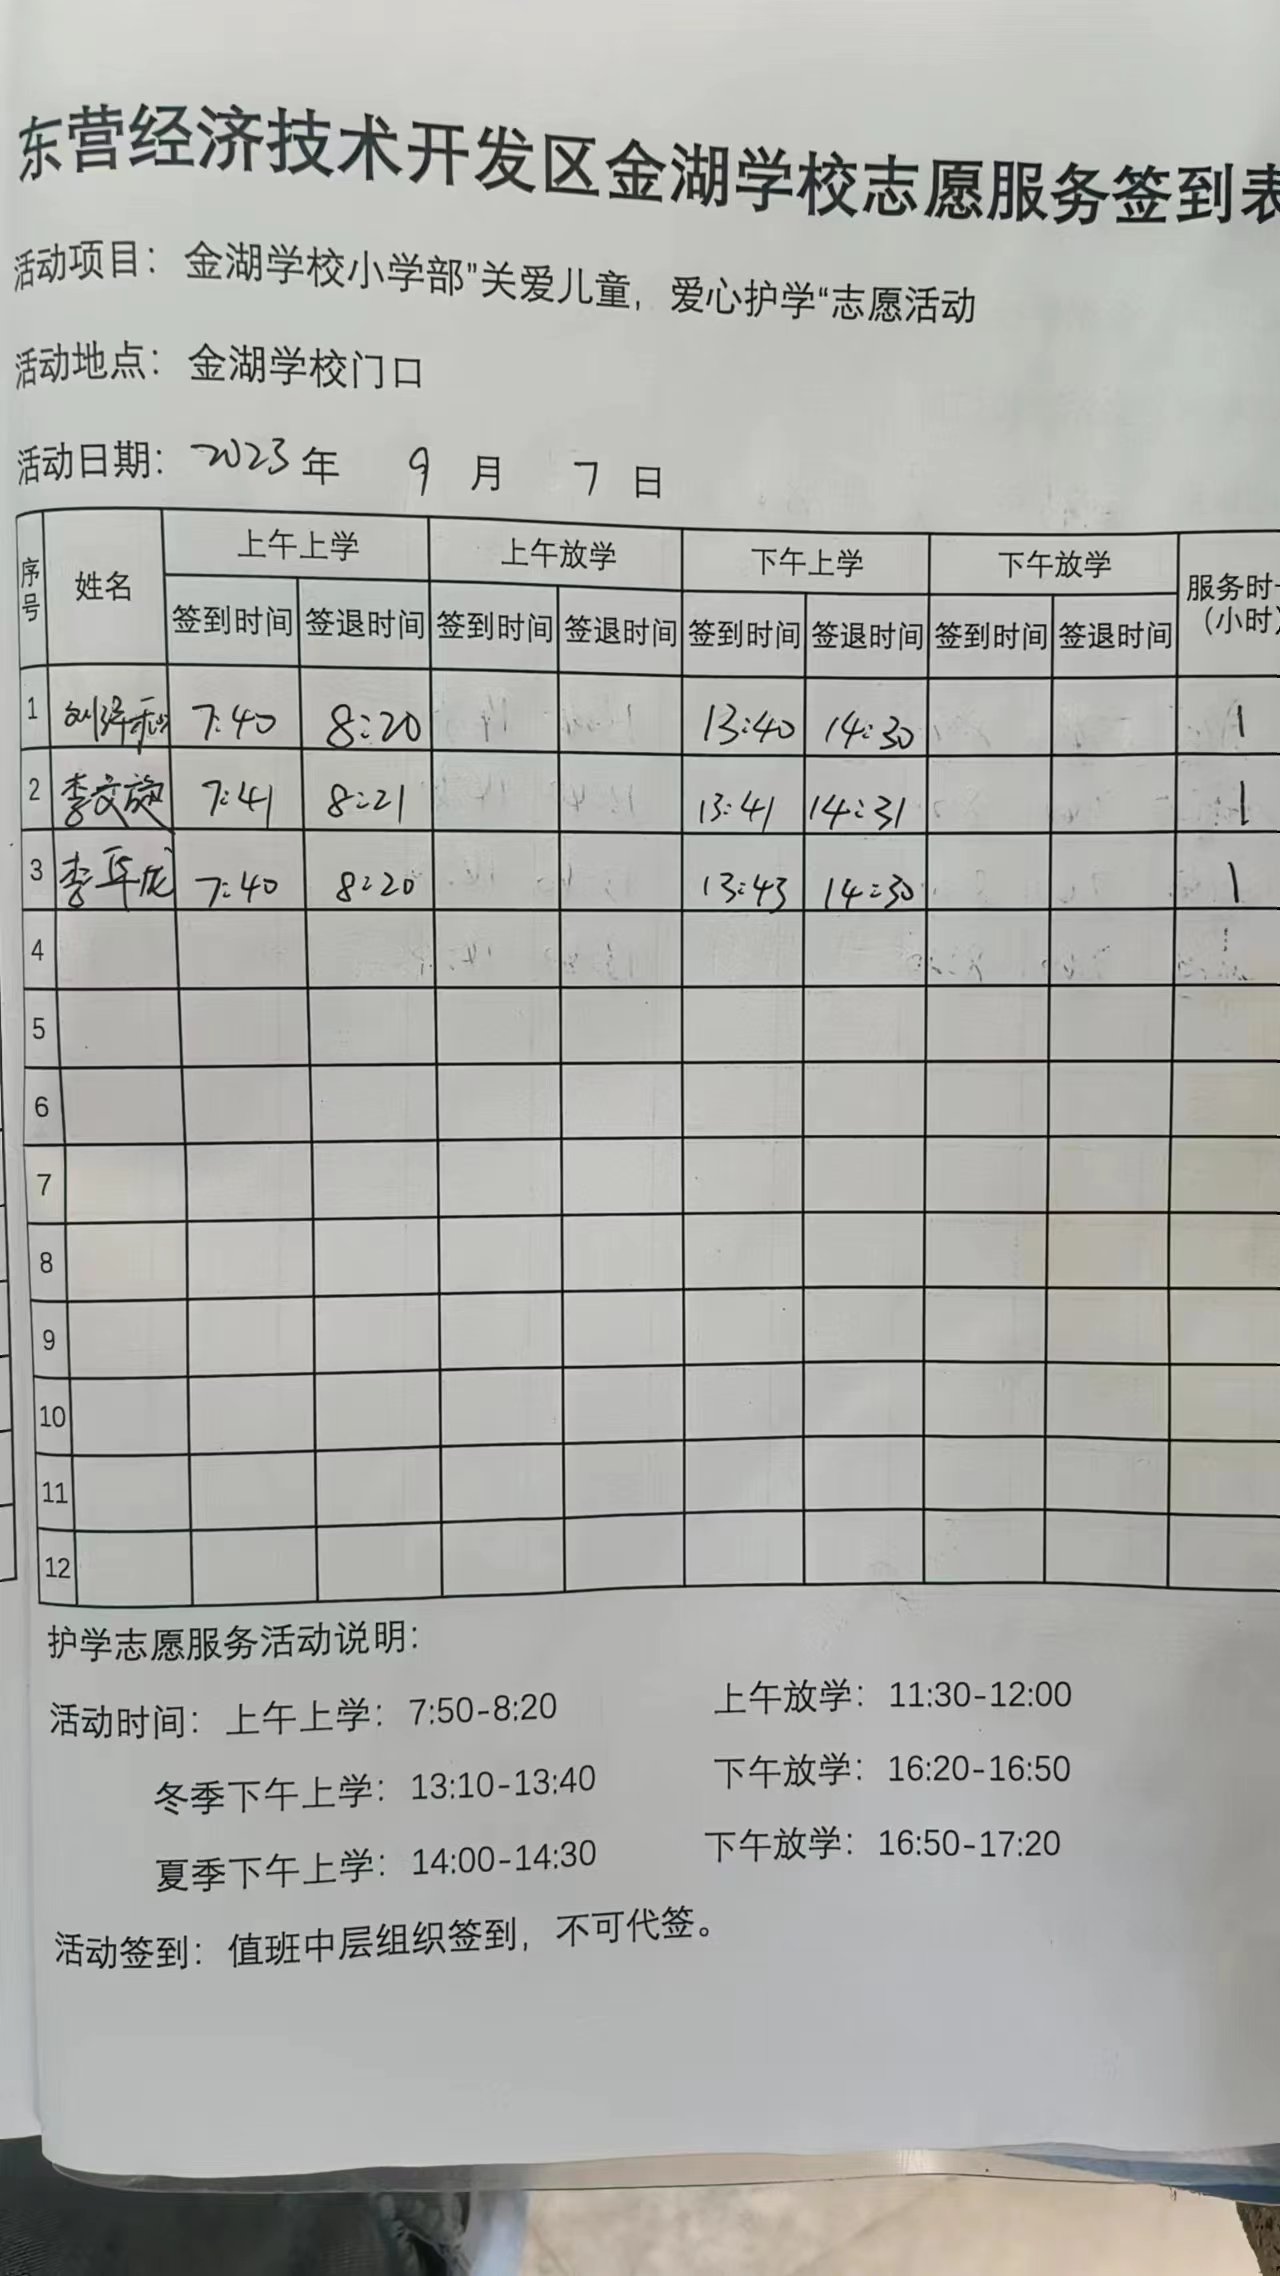 东营经济技术开发区金湖学校志愿服务签到表
活动项目：金湖学校小学部”关爱儿童，爱心护学“志愿活动
活动地点：金湖学校门口
活动日期：2023年 9月 7日
序号 姓名 上午上学 上午放学 下午上学 下午放学 服务时
(小时)
签到时间 签退时间 签到时间 签退时间 签到时间 签退时间 签到时间 签退时间
1 7:40 8:20 13:40 14:30 1
2 李文旋 7:41 8:21 13:41 14:31 1
3 李 7:40 8:20 13:43 14:30 1
4
5
6
7
8
9
10
11
12
护学志愿服务活动说明：
活动时间：上午上学：7:50-8:20 上午放学：11:30-12:00
冬季下午上学：13:10-13:40 下午放学：16:20-16:50
夏季下午上学：14:00-14:30 下午放学：16:50-17:20
活动签到：值班中层组织签到，不可代签。